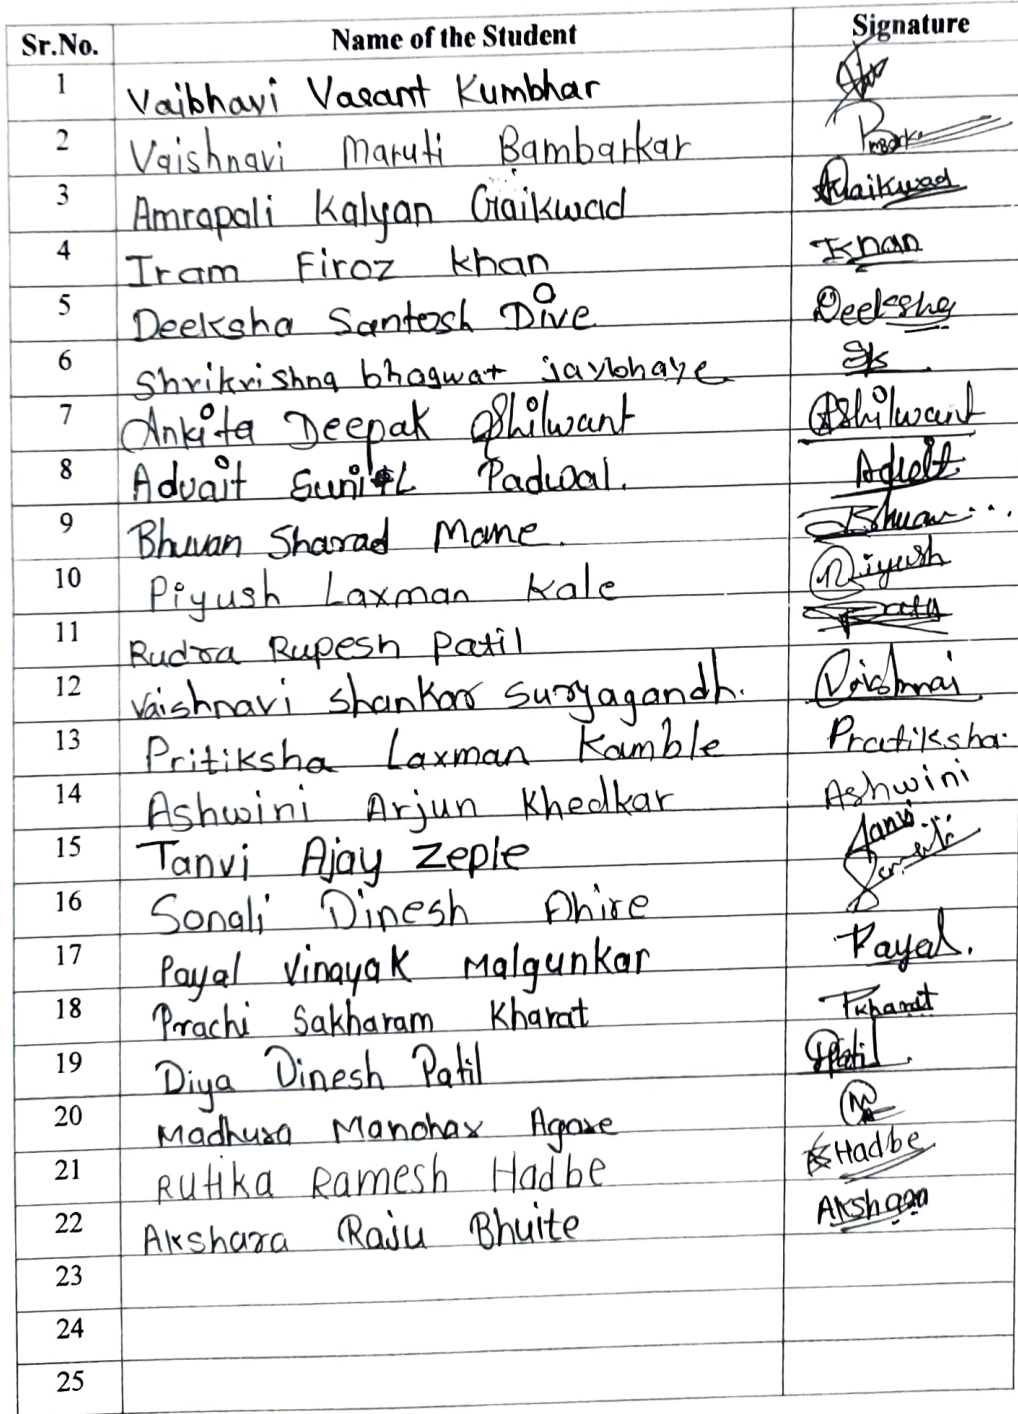 Sr.No. Name of the Student Signature
1 Vaibhavi Vasant Kumbhar
2 Vaishnavi Maruti Bambarkar
3 Amrapali Kalyan Gaikwad Gaikwad
4 Iram Firoz Khan Khan
5 Deeksha Santosh Dive Deeksha
6 Shrikrishna bhagwat jaybhaye
7 Ankita Deepak Shilwant Shilwant
8 Advait Sunil Padwal.
9 Bhuvan Sharad Mane.
10 Piyush Laxman Kale Piyush
11 Rudra Rupesh Patil
12 Vaishnavi Shankar Suryagandh.
13 Pritiksha Laxman Kamble Pratiksha.
14 Ashwini Arjun Khedkar Ashwini
15 Tanvi Ajay Zeple Tanvi
16 Sonali Dinesh Ahire
17 Payal Vinayak Malgunkar Payal.
18 Prachi Sakharam Kharat Pkharat
19 Diya Dinesh Patil Patil
20 Madhura Manohar Agare
21 Rutika Ramesh Hadbe Hadbe
22 Akshara Raju Bhuite Akshara
23
24
25